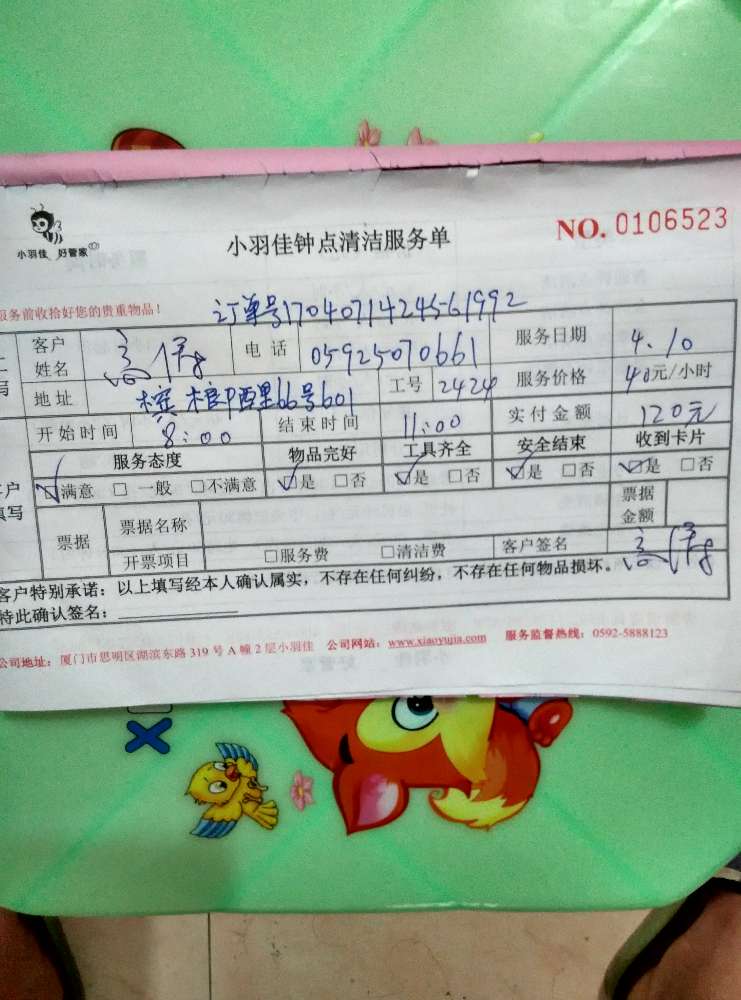 小羽佳 好管家
小羽佳钟点清洁服务单
NO. 0106523
服务前收拾好您的贵重物品！
订单号17040714245661992
客户姓名 电话 05925070661 服务日期 4.10
地址 槟榔西里66号601 工号 2424 服务价格 40元/小时
开始时间 8:00 结束时间 11:00 实付金额 120元
服务态度 物品完好 工具齐全 安全结束 收到卡片
☑满意 □ 一般 □不满意 ☑是 □否 ☑是 □否 ☑是 □否 ☑是 □否
票据 票据名称 票据金额
开票项目 □服务费 □清洁费 客户签名
客户特别承诺：以上填写经本人确认属实，不存在任何纠纷，不存在任何物品损坏。
特此确认签名：
公司地址：厦门市思明区湖滨东路 319 号 A 幢 2 层小羽佳 公司网站：www.xiaoyujia.com 服务监督热线：0592-5888123
X